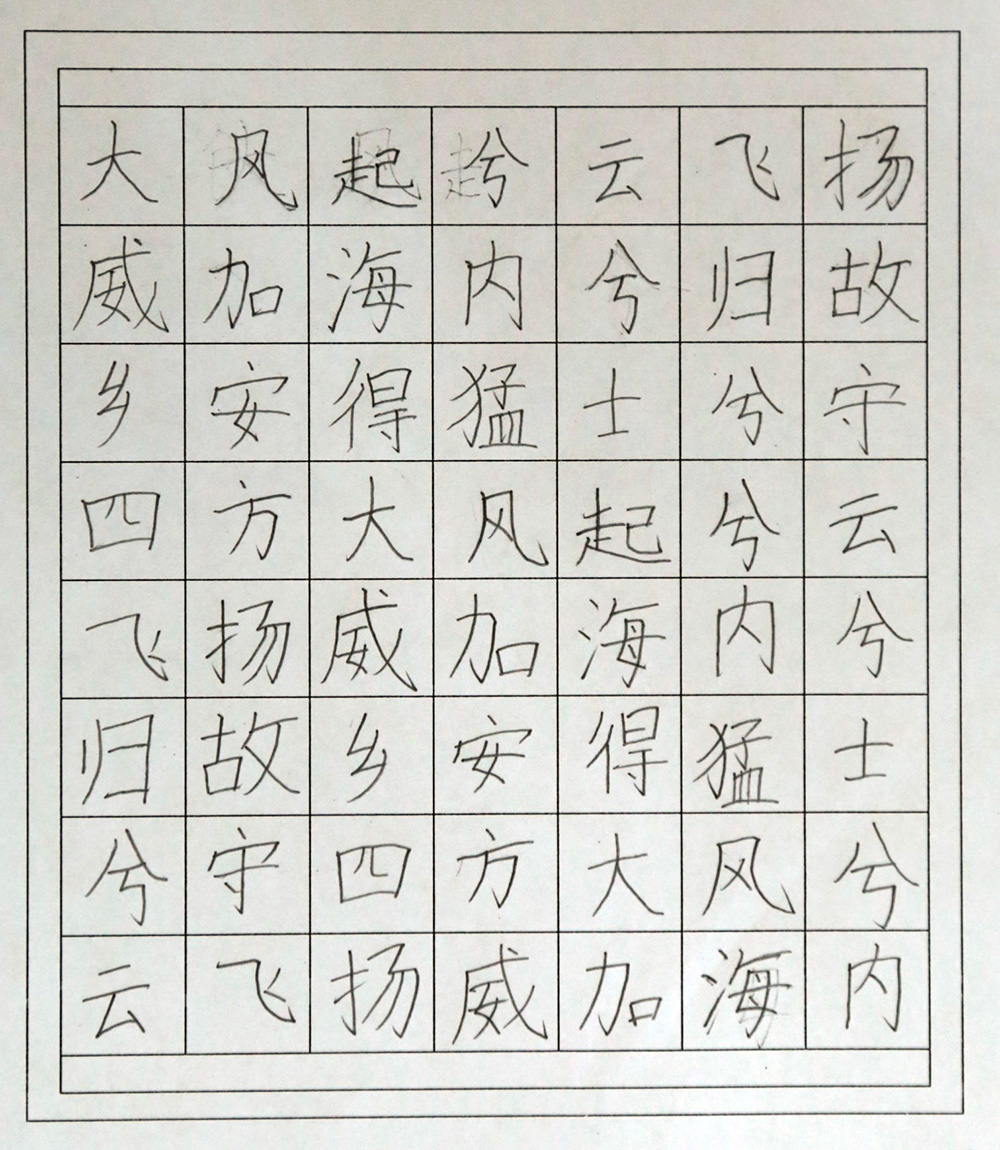 大风起兮云飞扬
威加海内兮归故
乡安得猛士兮守
四方大风起兮云
飞扬威加海内兮
归故乡安得猛士
兮守四方大风兮
云飞扬威加海内